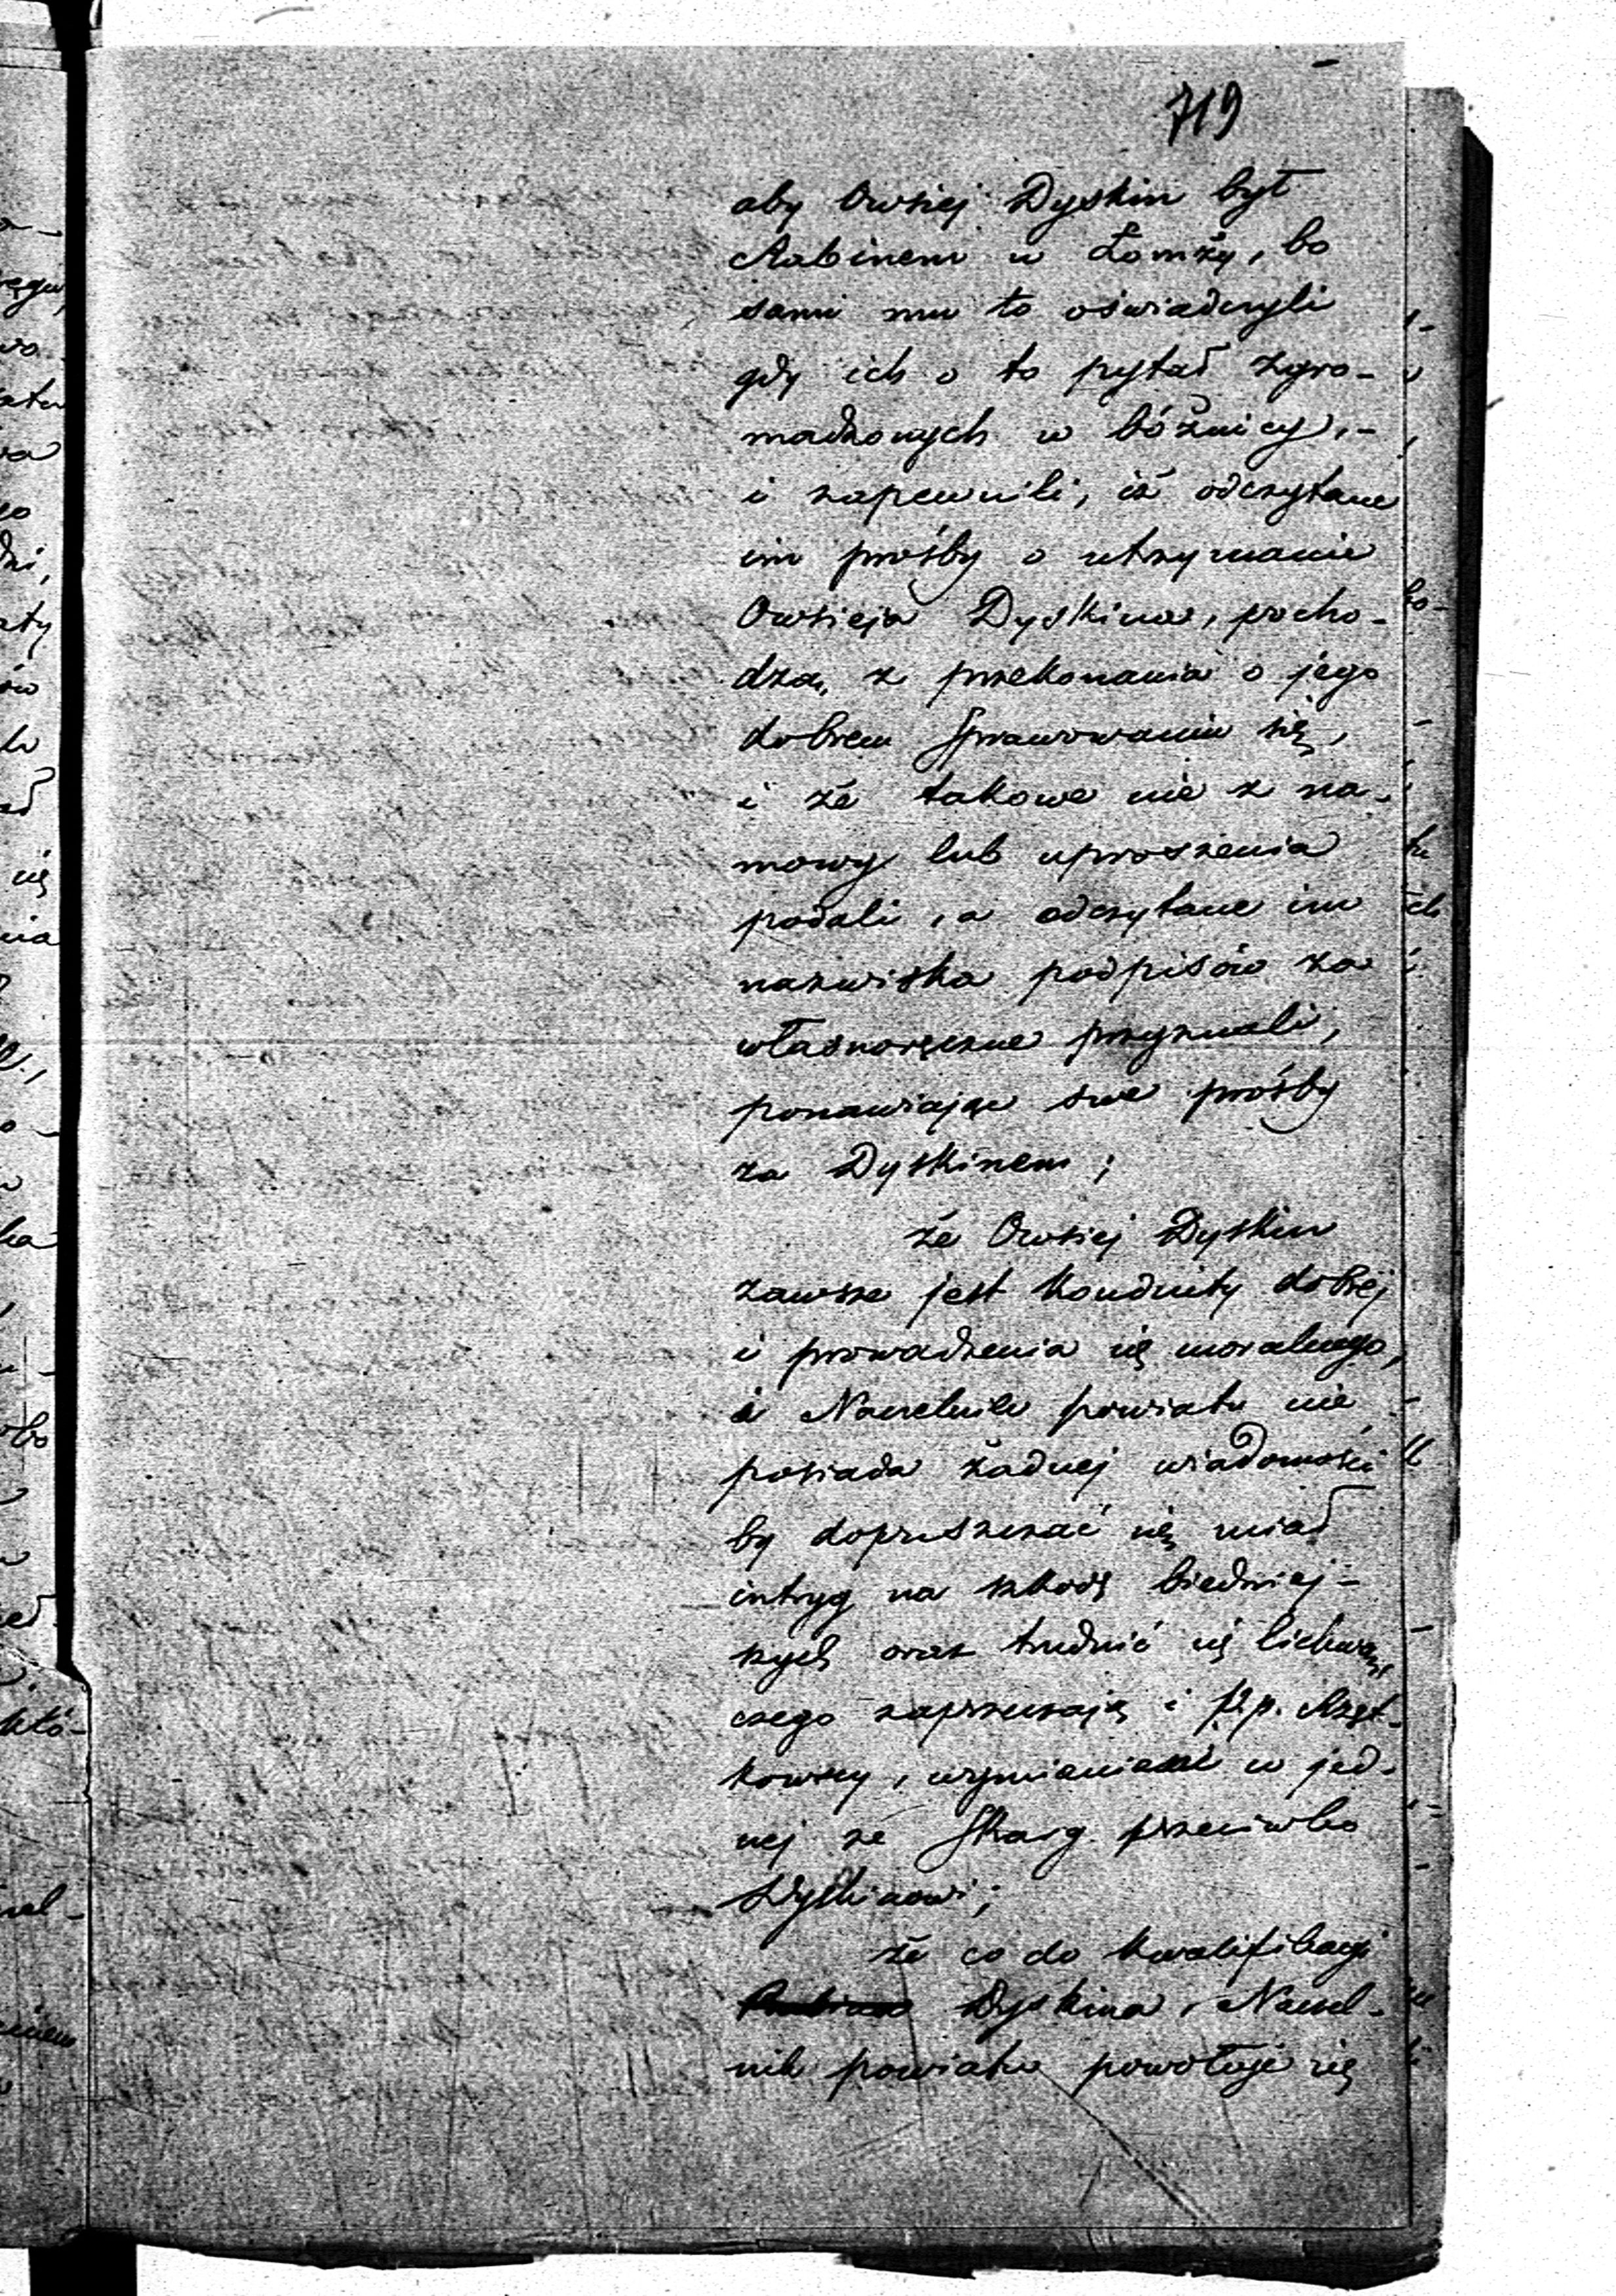 719
aby Owsiej Dyskin był
Rabinem w Łomży, bo
sami mu to oświadczyli
gdy ich o to pytał zgro-
madzonych w bóżnicy, -
i zapewnili, iż odczytane
im prośby o utrzymanie
Owsieja Dyskina, pocho-
dzą, z przekonania o jego
dobrem sprawowaniu się,
i że takowe nie z na-
mowy lub uproszenia
podali, a odczytane im
nazwiska podpisów za
własnoręczne przyznali,
ponawiając swe prośby
za Dyskinem;
że Owsiej Dyskin
zawsze jest konduity dobrej
i prowadzenia się moralnego,
i Naczelnik powiatu nie
posiada żadnej wiadomości
by dopuszczać się miał
intryg na szkodę biedniej-
szych oraz trudnić się lichwą,
czego zaprzeczają i p.p.
w jed-
nej ze skarg przeciwko
Dyskinowi;
że co do kwalifikacji
Dyskina, Naczel-
nik powiatu powołuje się